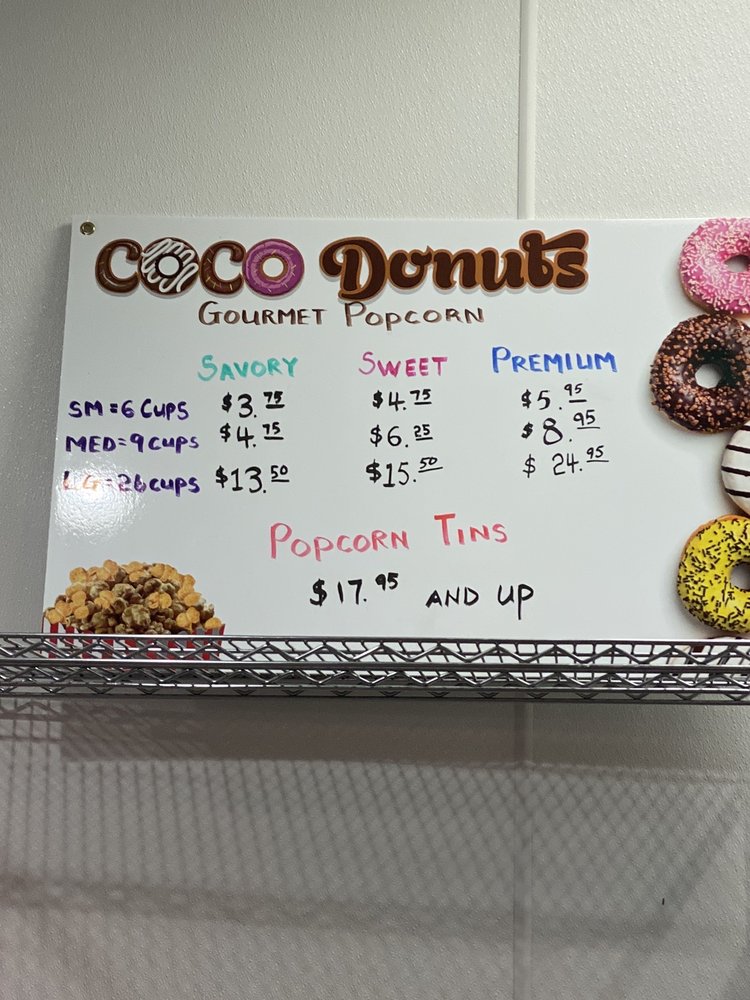 COCO Donuts
GOURMET POPCORN
SAVORY SWEET PREMIUM
SM=6 CUPS $3.75 $4.75 $5.95
MED=9 CUPS $4.75 $6.25 $8.95
LG=26 CUPS $13.50 $15.50 $24.95
POPCORN TINS
$17.95 AND UP